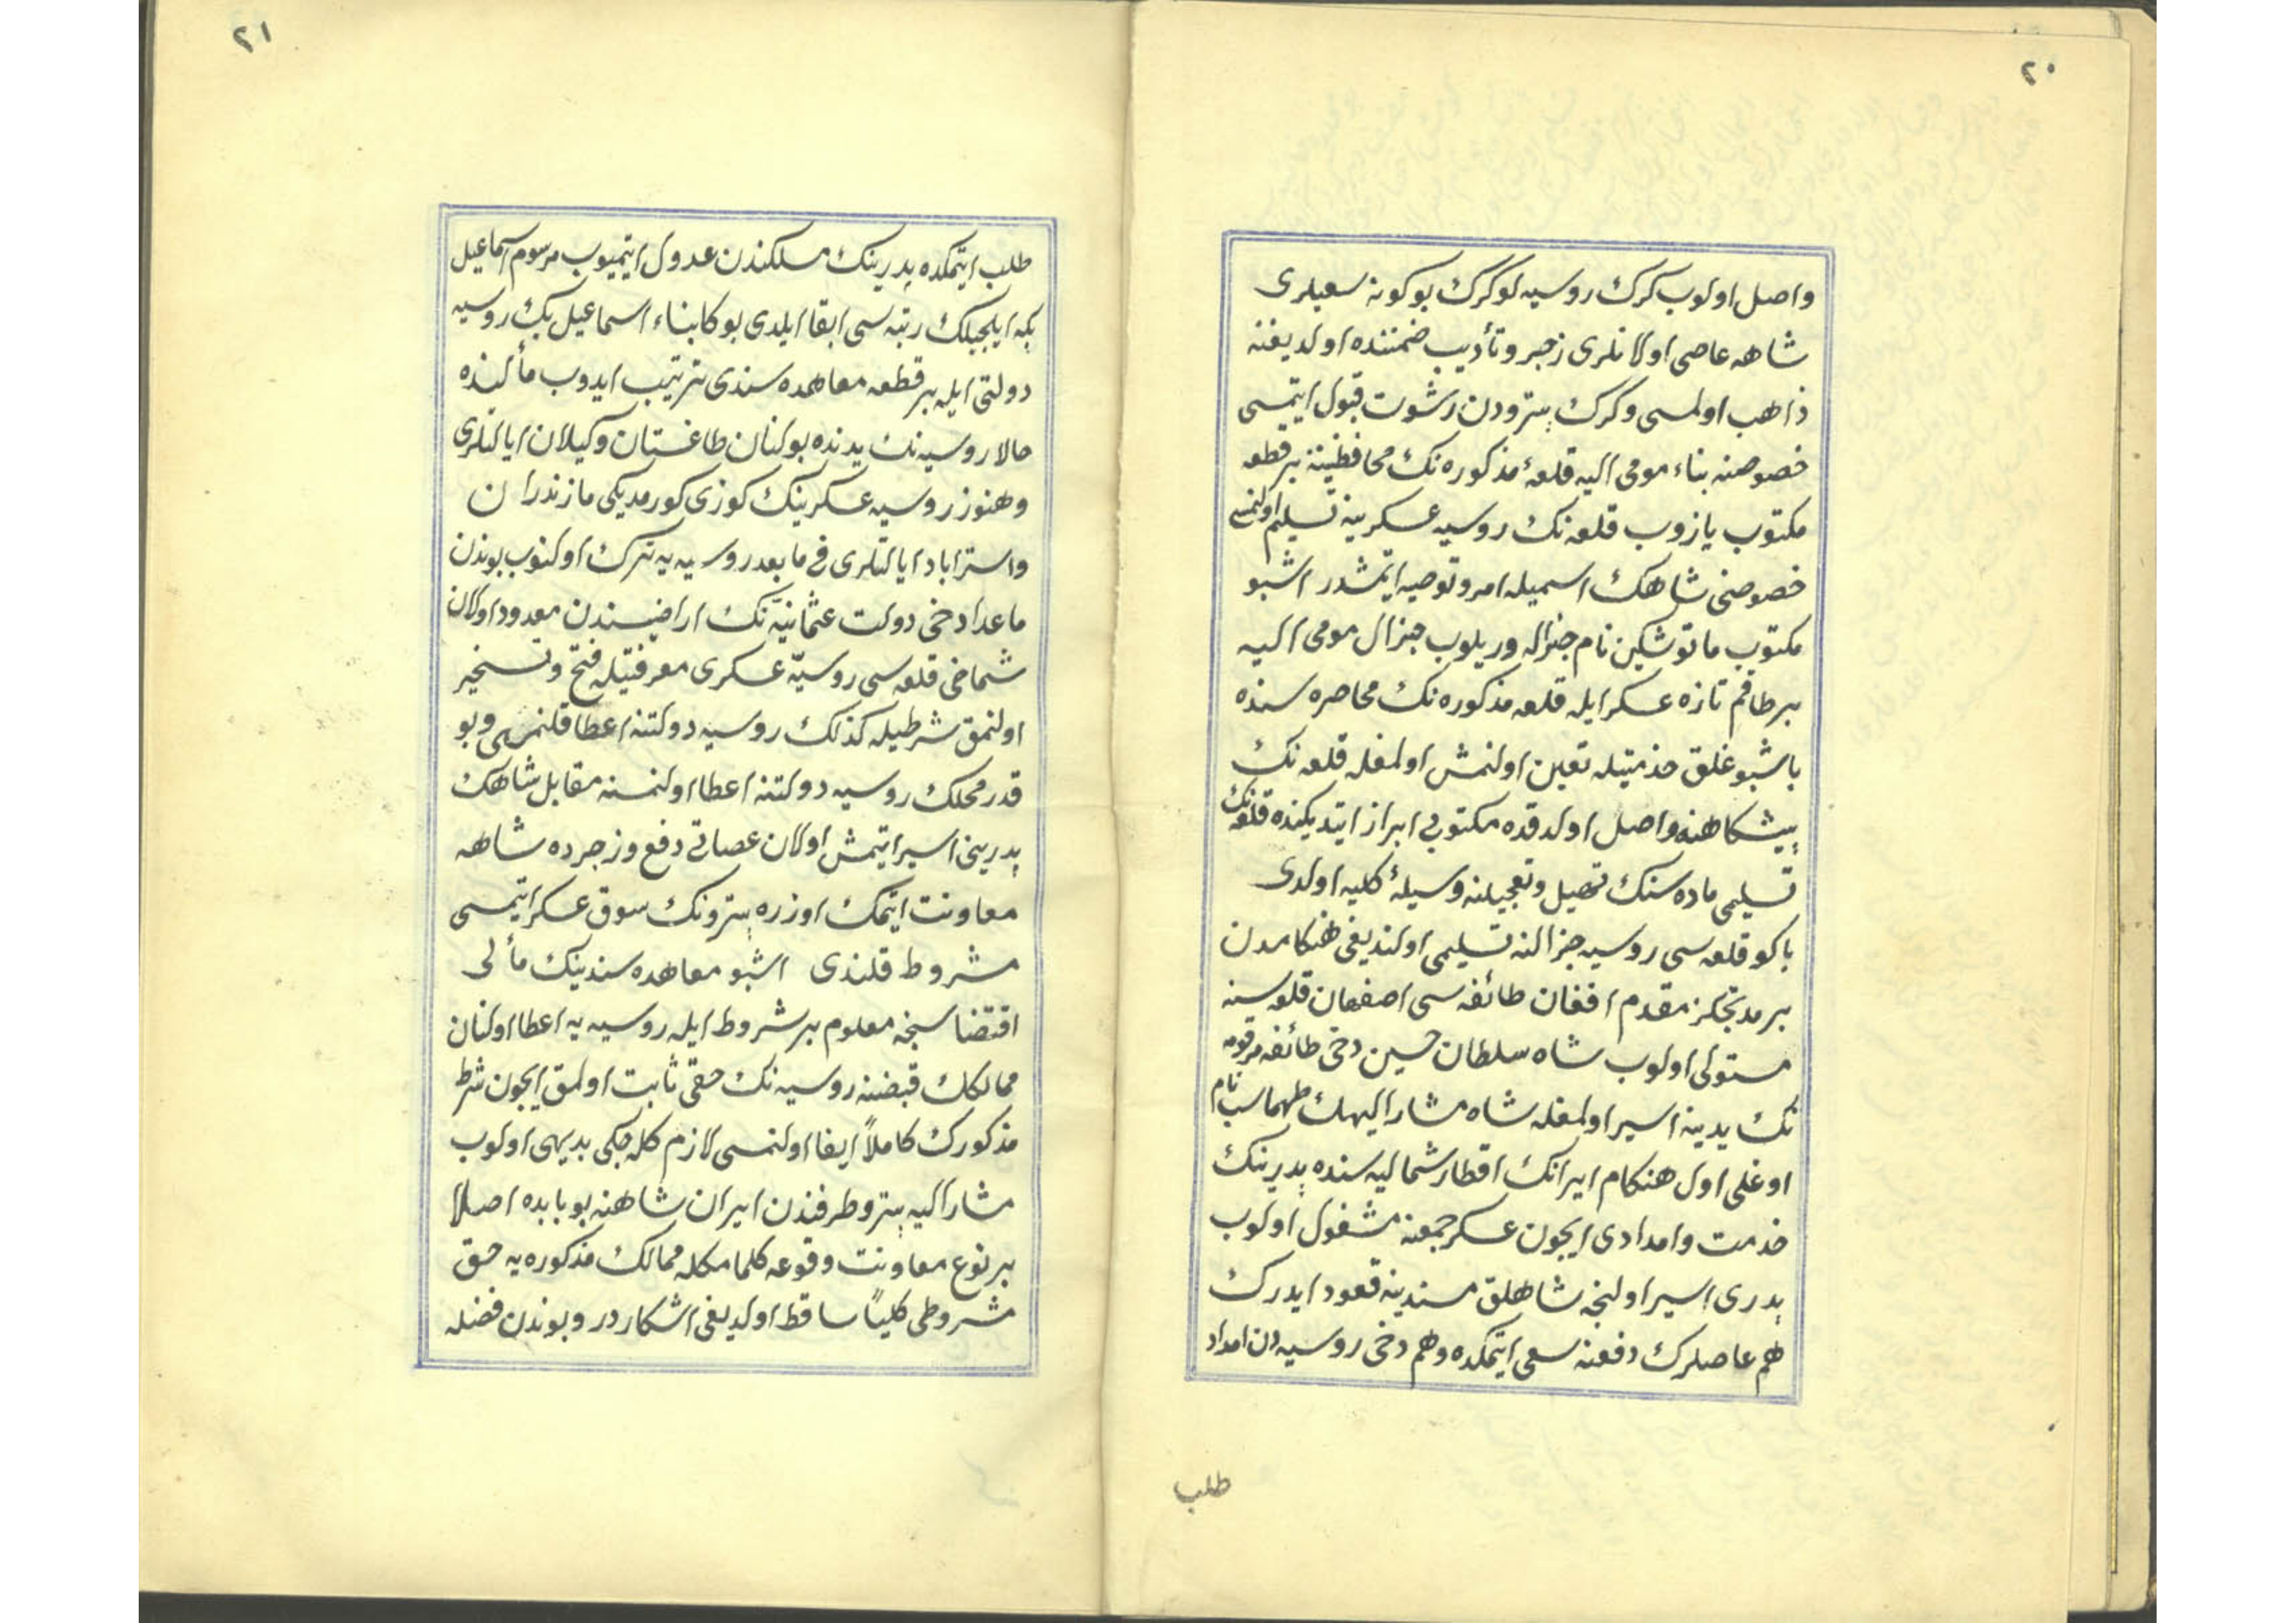 ٢٠
واصل اولوب كرك روسیه لو كرك بو كونه سعیلری
شاهه عاصی اولانلری زجر و تأدیب ضمننده اولدیغنه
ذاهب اولمسی وكرك پترودن رشوت قبول ایتمسی
خصوصنه بناء مومی الیه قلعۀ مذكوره نك محافظینه بر قطعه
مكتوب یازوب قلعه نك روسیه عسكرینه تسلیم اولنمسی
خصوصنی شاهك اسمیله امر و توصیه ایتمشدر اشبو
مكتوب ماتوشكین نام جنراله ویریلوب جنرال مومی الیه
بر طاقم تازه عسكر ایله قلعه مذكوره نك محاصره سنده
باشبوغلق خدمتیله تعین اولنمش اولمغله قلعه نك
پیشكاهنه واصل اولدقده مكتوبی ابراز ایتدیكنده قلعه نك
تسلیمی ماده سنك تهیل و تعجیلنه وسیلۀ كلیه اولدی
باكو قلعه سی روسیه جنرالنه تسلیمی اولندیغی هنكامدن
بر مدتجكز مقدم افغان طائفه سی اصفهان قلعه سنه
مستولی اولوب شاه سلطان حسین دخی طائفه مرقومه
نك یدینه اسیر اولمغله شاه مشار الیهك طهماسب نام
اوغلی اول هنكام ایرانك اقطار شمالیه سنده پدرینك
خدمت و امدادی ایچون عسكر جمعنه مشغول اولوب
پدری اسیر اولنجه شاهلق مسندینه قعود ایدرك
هم عاصلرك دفعنه سعی ایتمكده وهم دخی روسیه دن امداد
طلب
٢١
طلب ایتمكده پدرینك مسلكندن عدول ایتمیوب مرسوم اسماعیل
بكه ایلچیلك رتبه سی ابقا ایلدی بوكا بناء اسماعیل بك روسیه
دولتی ایله بر قطعه معاهده سندی ترتیب ایدوب مألنده
حالا روسیه نك یدنده بولنان طاغستان و كیلان ایالتلری
وهنوز روسیه عسكرینك كوزی كورمدیكی مازندران
و استراباد ایالتلری فی مابعد روسیه یه ترك اولنوب بوندن
ماعدا دخی دولت عثمانیه نك اراضیسندن معدود اولان
شماخی قلعه سی روسیه عسكری معرفتیله فتح و تسخیر
اولنمق شرطیله كذلك روسیه دولتنه اعطا قلنمسی و بو
قدر محلك روسیه دولتنه اعطا اولنمسنه مقابل شاهك
پدرینی اسیر ایتمش اولان عصاتی دفع و زجرده شاهه
معاونت ایتمك اوزره پترونك سوق عسكر ایتمسی
مشروط قلندی اشبو معاهده سندینك مألی
اقتضاسنجه معلوم بر شروط ایله روسیه یه اعطا اولنان
ممالكك قبضنه روسیه نك حقی ثابت اولمق ایچون شرط
مذكورك كاملاً ایفا اولنمسی لازم كله جكی بدیهی اولوب
مشار الیه پترو طرفندن ایران شاهنه بو بابده اصلا
بر نوع معاونت وقوعه كلمامكله ممالك مذكوره یه حق
مشروطی كلیاً ساقط اولدیغی اشكاردر و بوندن فضله